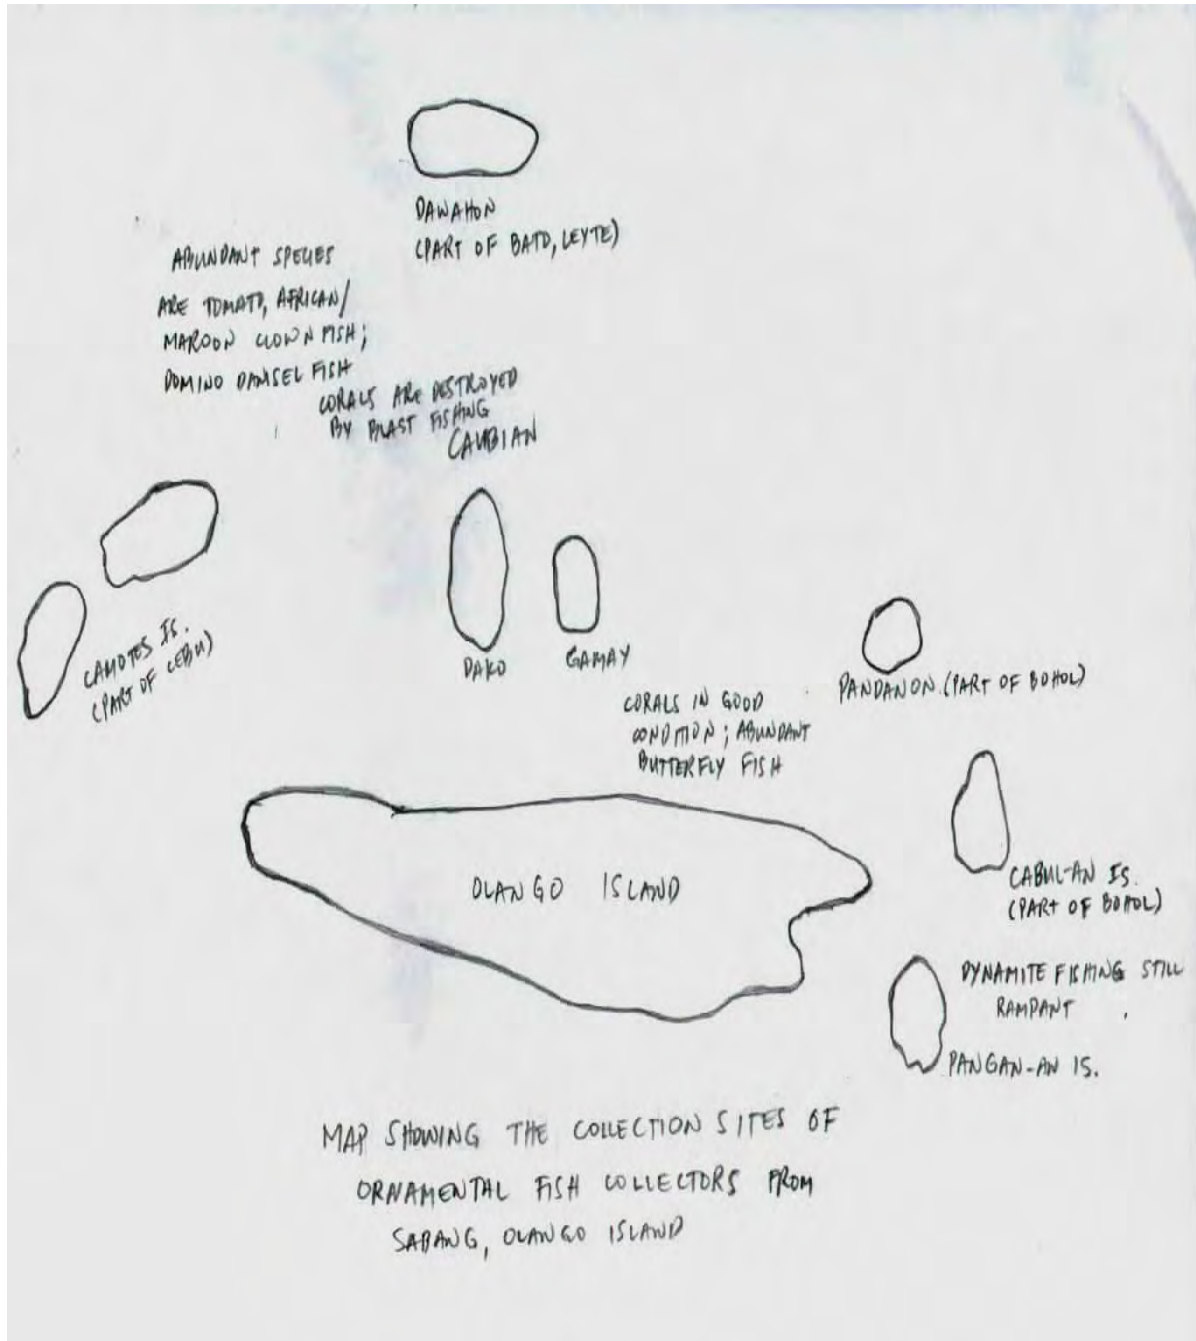 DAWAHON
(PART OF BATO, LEYTE)
ABUNDANT SPECIES
ARE TOMATO, AFRICAN/
MAROON CLOWN FISH;
DOMINO DAMSEL FISH
CORALS ARE DESTROYED
BY BLAST FISHING
CAUBIAN
CAMOTES IS.
(PART OF CEBU)
DAKO
GAMAY
PANDANON (PART OF BOHOL)
CORALS IN GOOD
CONDITION; ABUNDANT
BUTTERFLY FISH
OLANGO ISLAND
CABUL-AN IS.
(PART OF BOHOL)
DYNAMITE FISHING STILL
RAMPANT
PANGAN-AN IS.
MAP SHOWING THE COLLECTION SITES OF
ORNAMENTAL FISH COLLECTORS FROM
SABANG, OLANGO ISLAND